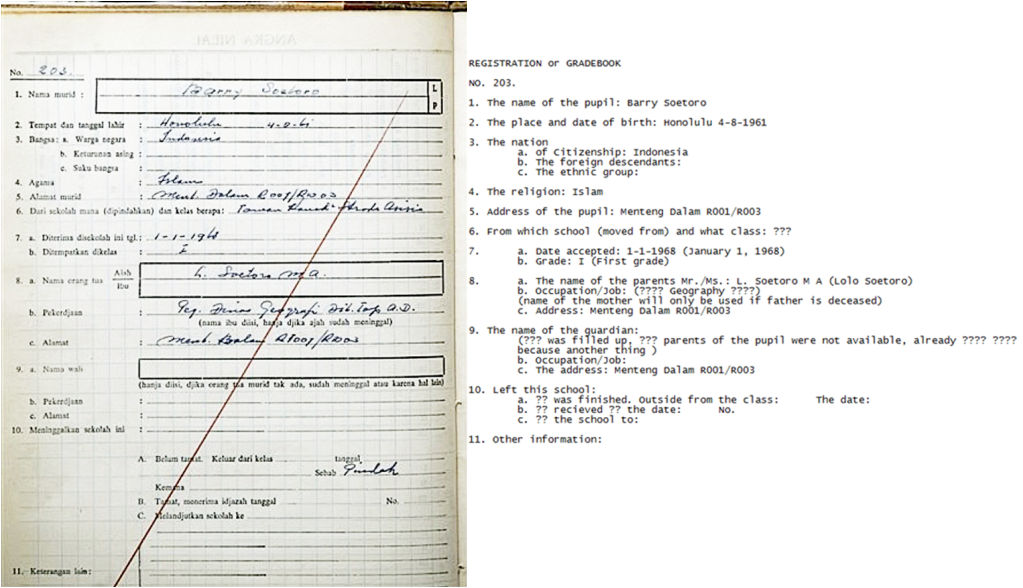 ANGKA NILAI
No. 203.
1. Nama murid : Barry Soetoro L
P
2. Tempat dan tanggal lahir : Honolulu 4-8-61
3. Bangsa: a. Warga negara : Indonesia
b. Keturunan asing :
c. Suku bangsa :
4. Agama : Islam
5. Alamat murid : Ment. Dalam R001/Rw03
6. Dari sekolah mana (dipindahkan) dan kelas berapa: Asisis
7. a. Diterima disekolah ini tgl.: 1-1-1968
b. Ditempatkan dikelas : I
8. a. Nama orang tua Ajah L. Soetoro M.A.
Ibu
b. Pekerdjaan : Peg. Dinas Geografi Dit. Top. A.D.
(nama ibu diisi, hanja djika ajah sudah meninggal)
c. Alamat : Ment. Dalam RT001/Rw03
9. a. Nama wali
(hanja diisi, djika orang tua murid tak ada, sudah meninggal atau karena hal lain)
b. Pekerdjaan :
c. Alamat :
10. Meninggalkan sekolah ini :
A. Belum tamat. Keluar dari kelas tanggal
Sebab Pindah
Kemana
B. Tamat, menerima idjazah tanggal No.
C. Melandjutkan sekolah ke
11. Keterangan lain:
REGISTRATION or GRADEBOOK
NO. 203.
1. The name of the pupil: Barry Soetoro
2. The place and date of birth: Honolulu 4-8-1961
3. The nation
a. of Citizenship: Indonesia
b. The foreign descendants:
c. The ethnic group:
4. The religion: Islam
5. Address of the pupil: Menteng Dalam R001/R003
6. From which school (moved from) and what class: ???
7. a. Date accepted: 1-1-1968 (January 1, 1968)
b. Grade: I (First grade)
8. a. The name of the parents Mr./Ms.: L. Soetoro M A (Lolo Soetoro)
b. Occupation/Job: (???? Geography ????)
(name of the mother will only be used if father is deceased)
c. Address: Menteng Dalam R001/R003
9. The name of the guardian:
(??? was filled up, ??? parents of the pupil were not available, already ???? ????
because another thing )
b. Occupation/Job:
c. The address: Menteng Dalam R001/R003
10. Left this school:
a. ?? was finished. Outside from the class: The date:
b. ?? recieved ?? the date: No.
c. ?? the school to:
11. Other information: